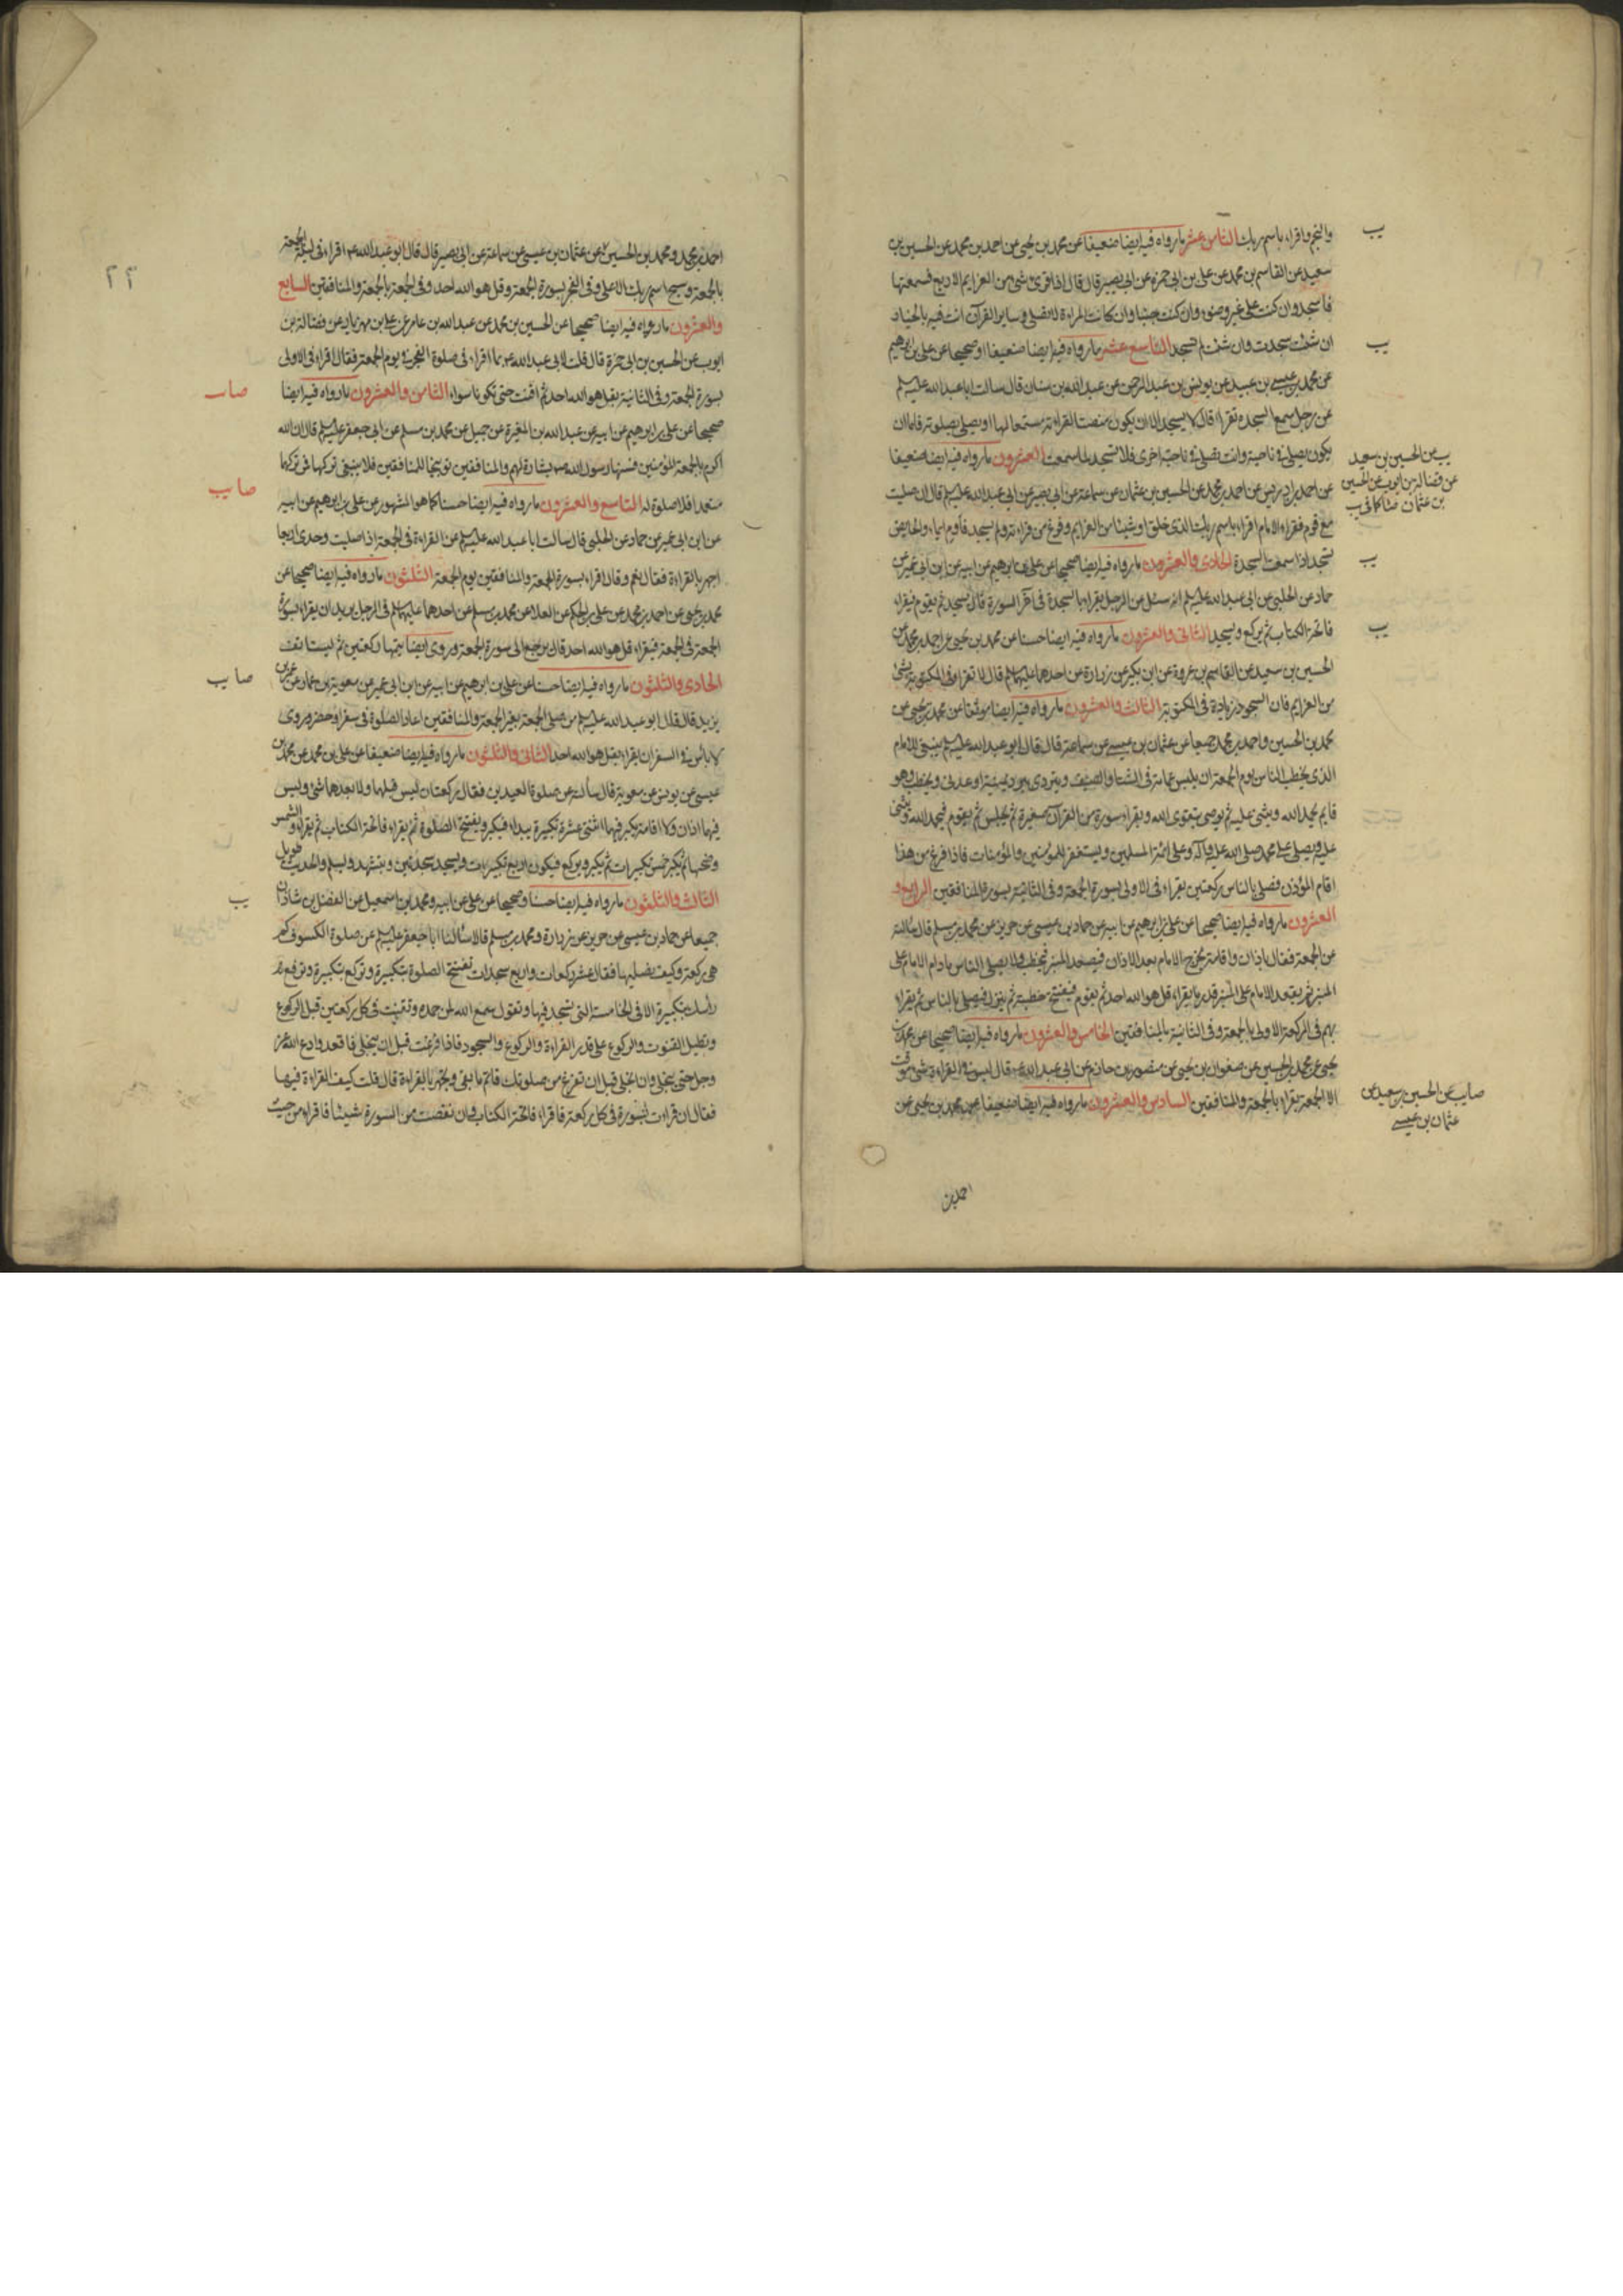 والنجم واقراء باسم ربك الثامن عشر ما رواه فيه ايضا ضعيفا عن محمد بن يحيى عن احمد بن محمد عن الحسين بن
سعيد عن القاسم بن محمد عن علي بن ابي حمزه عن ابي بصير قال قال اذا قرئ شئ من العزايم الاربع فسمعتها
فاسجد وان كنت على غير وضوء وان كنت جنبا وان كانت المراءة لا تصلي وساير القرآن انت فيه بالخيار
ان شئت سجدت وان شئت لم تسجد التاسع عشر ما رواه فيه ايضا ضعيفا او صحيحا عن علي بن ابرهيم
عن محمد بن عيسى بن عبيد عن يونس بن عبد الرحمن عن عبد الله بن سنان قال سالت ابا عبد الله عليه السلم
عن رجل سمع السجده تقرا قال لا يسجد الا ان يكون منصتا لقراءته مستمعا لها او يصلي بصلوته فاما ان
يكون يصلي في ناحية وانت تصلي في ناحية اخرى فلا تسجد لما سمعت العشرون ما رواه فيه ايضا ضعيفا
عن احمد بن ادريس عن احمد بن محمد عن الحسين بن عثمان عن سماعة عن ابي بصير عن ابي عبد الله عليه السلم قال ان صليت
مع قوم فقراء الامام اقراء باسم ربك الذى خلق او شيئا من العزايم وفرغ من قراءته ولم يسجد فاوم ايماء والحايض
تسجد اذا سمعت السجدة الحادى والعشرون ما رواه فيه ايضا صحيحا عن علي بن ابرهيم عن ابيه عن ابن ابي عمير عن
حماد عن الحلبي عن ابي عبد الله عليه السلم انه سئل عن الرجل يقراء بالسجدة في آخر السورة قال يسجد ثم يقوم فيقراء
فاتحة الكتاب ثم يركع ويسجد الثانى والعشرون ما رواه فيه ايضا حسنا عن محمد بن يحيى عن احمد بن محمد عن
الحسين بن سعيد عن القاسم بن عروة عن ابن بكير عن زرارة عن احدهما عليهما السلم قال لا تقرا في المكتوبة بشئ
من العزايم فان السجود زيادة في المكتوبة الثالث والعشرون ما رواه فيه ايضا موثقا عن محمد بن يحيى عن
محمد بن الحسين واحمد بن محمد جميعا عن عثمان بن عيسى عن سماعة قال قال ابو عبد الله عليه السلم ينبغي للامام
الذى يخطب الناس يوم الجمعة ان يلبس عمامة في الشتا والصيف ويتردى ببرد يمنية او عدني ويخطب وهو
قايم يحمد الله ويثني عليه ثم يوصي بتقوى الله ويقراء سورة من القرآن صغيرة ثم يجلس ثم يقوم فيحمد الله ويثنى
عليه ويصلي على محمد صلى الله عليه وآله وعلى ائمة المسلمين ويستغفر للمؤمنين والمؤمنات فاذا فرغ من هذا
اقام المؤذن فصلى بالناس ركعتين يقراء في الاولى بسورة الجمعة وفي الثانية بسورة المنافقين الرابع و
العشرون ما رواه فيه ايضا صحيحا عن علي بن ابرهيم عن ابيه عن حماد بن عيسى عن حريز عن محمد بن مسلم قال سالته
عن الجمعة فقال باذان واقامة يخرج الامام بعد الاذان فيصعد المنبر فيخطب ولا يصلي الناس ما دام الامام على
المنبر ثم يقعد الامام على المنبر قدر ما يقراء قل هو الله احد ثم يقوم فيفتتح خطبته ثم ينزل فيصلي بالناس ثم يقراء
بهم في الركعة الاولى بالجمعة وفي الثانية بالمنافقين الخامس والعشرون ما رواه فيه ايضا صحيحا عن محمد بن
يحيى عن محمد بن الحسين عن صفوان بن يحيى عن منصور بن حازم عن ابي عبد الله ع قال ليس في القراءة شئ موقت
الا الجمعة يقراء بالجمعة والمنافقين السادس والعشرون ما رواه فيه ايضا ضعيفا عن محمد بن يحيى عن
احمد بن
يب
يب
يب عن الحسين بن سعيد
عن فضالة بن ايوب عن الحسين
بن عثمان
يب
يب
صا يب عن الحسين بن سعيد عن
عثمان بن عيسى
٢٢
احمد بن محمد ومحمد بن الحسين عن عثمان بن عيسى عن سماعة عن ابي بصير قال قال ابو عبد الله ع اقراء في ليلة الجمعة
بالجمعة وسبح اسم ربك الاعلى وفي الفجر بسورة الجمعة وقل هو الله احد وفي الجمعة بالجمعة والمنافقين السابع
والعشرون ما رواه فيه ايضا صحيحا عن الحسين بن محمد عن عبد الله بن عامر عن علي بن مهزيار عن فضالة بن
ايوب عن الحسين بن ابي حمزة قال قلت لابي عبد الله ع بما اقراء في صلوة الفجر في يوم الجمعة فقال اقراء في الاولى
بسورة الجمعة وفي الثانية بقل هو الله احد ثم اقنت حتى تكونا سواء الثامن والعشرون ما رواه فيه ايضا
صحيحا عن علي بن ابرهيم عن ابيه عن عبد الله بن المغيرة عن جميل عن محمد بن مسلم عن ابي جعفر عليه السلم قال ان الله
اكرم بالجمعة المؤمنين فسنها رسول الله ص بشارة لهم والمنافقين توبيخا للمنافقين فلا ينبغي تركها فمن تركها
متعمدا فلا صلوة له التاسع والعشرون ما رواه فيه ايضا حسنا كما هو المشهور عن علي بن ابرهيم عن ابيه
عن ابن ابي عمير عن حماد عن الحلبي قال سالت ابا عبد الله عليه السلم عن القراءة في الجمعة اذا صليت وحدى اربعا
اجهر بالقراءة فقال نعم وقال اقراء بسورة الجمعة والمنافقين يوم الجمعة الثلثون ما رواه فيه ايضا صحيحا عن
محمد بن يحيى عن احمد بن محمد عن علي بن الحكم عن العلاء عن محمد بن مسلم عن احدهما عليهما السلم في الرجل يريد ان يقراء بسورة
الجمعة في الجمعة فيقراء قل هو الله احد قال يرجع الى سورة الجمعة وروى ايضا يتمها ركعتين ثم ليستانف
الحادى والثلثون ما رواه فيه ايضا حسنا عن علي بن ابرهيم عن ابيه عن ابن ابي عمير عن معوية بن عمار عن عمر بن
يزيد قال قال ابو عبد الله عليه السلم من صلى الجمعة بغير الجمعة والمنافقين اعاد الصلوة في سفر او حضر وروى
لا بأس في السفر ان يقراء بقل هو الله احد الثانى والثلثون ما رواه فيه ايضا ضعيفا عن علي بن محمد عن محمد بن
عيسى عن يونس عن معوية قال سألته عن صلوة العيدين فقال ركعتان ليس قبلها ولا بعدهما شئ وليس
فيهما اذان ولا اقامة يكبر فيهما اثنتي عشرة تكبيرة يبداء فيكبر ويفتتح الصلوة ثم يقراء فاتحة الكتاب ثم يقراء والشمس
وضحيها ثم يكبر خمس تكبيرات ثم يكبر ويركع فيكون اربع تكبيرات ويسجد سجدتين ويتشهد ويسلم والحديث طويل
الثالث والثلثون ما رواه فيه ايضا حسنا وصحيحا عن علي عن ابيه ومحمد بن اسمعيل عن الفضل بن شاذان
جميعا عن حماد بن عيسى عن حريز عن زرارة ومحمد بن مسلم قالا سألنا ابا جعفر عليه السلم عن صلوة الكسوف كم
هي ركعة وكيف نصليها فقال عشر ركعات واربع سجدات تفتتح الصلوة بتكبيرة وتركع بتكبيرة وترفع
رأسك بتكبيرة الا في الخامسة التي تسجد فيها وتقول سمع الله لمن حمده وتقنت في كل ركعتين قبل الركوع
وتطيل القنوت والركوع على قدر القراءة والركوع والسجود فاذا فرغت قبل ان ينجلي فاقعد وادع الله عز
وجل حتى ينجلي وان انجلى قبل ان تفرغ من صلوتك فاتم ما بقي وتجهر بالقراءة قال قلت كيف القراءة فيها
فقال ان قراءت سورة في كل ركعة فاقراء فاتحة الكتاب فان نقصت من السورة شيئا فاقراء من حيث
صا يب
صا يب
يب